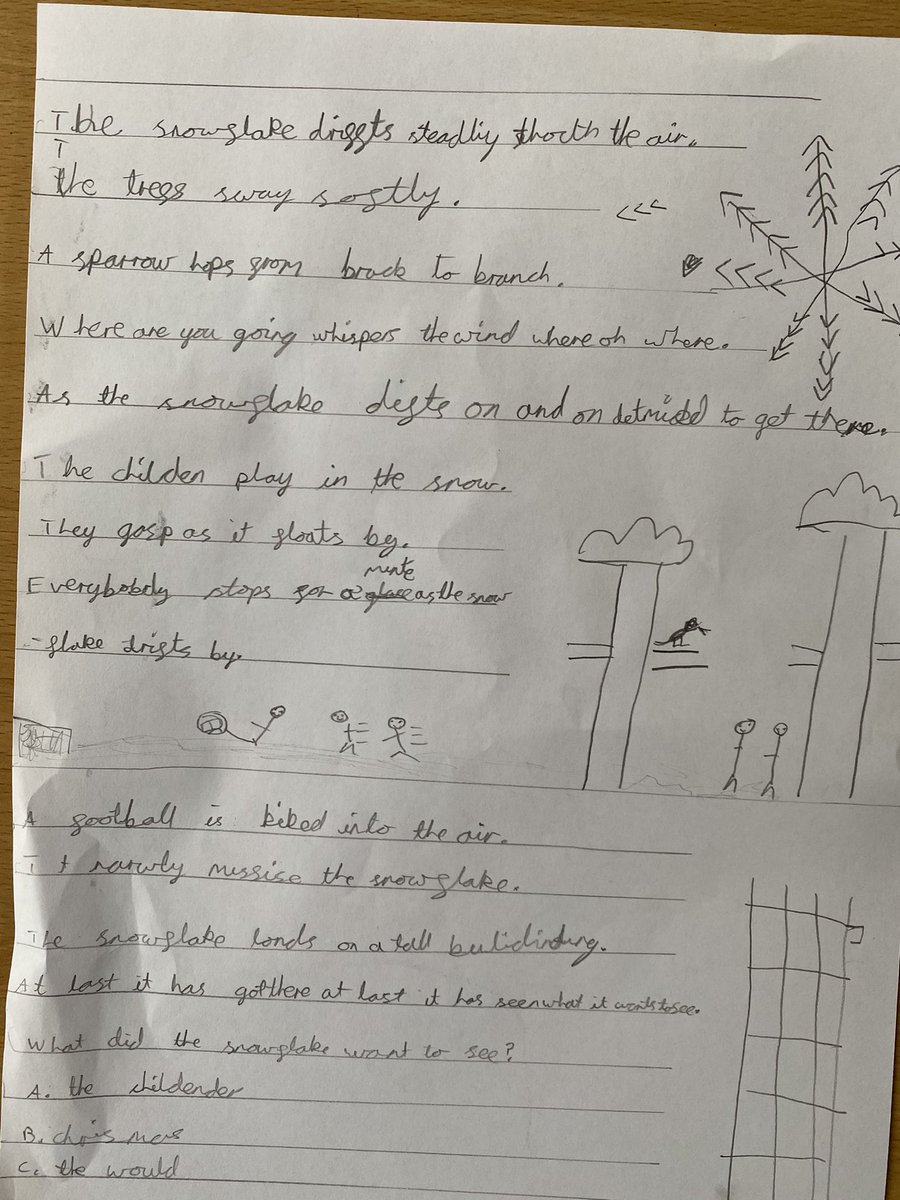 The snowflake driffts steadliy thorth the air.
The trees sway softly.
A sparrow hops from brack to branch.
Where are you going whispers the wind where oh where.
As the snowflake difts on and on detmided to get there.
The childen play in the snow.
They gasp as it floats by.
minte
Everybobdy stops for a as the snow
-flake drifts by.
A football is kiked into the air.
It narwly missise the snowflake.
The snowflake lands on a tall
At last it has got there at last it has seen what it wants to see.
What did the snowflake want to see?
A. the childender
B. chrismas
C. the would